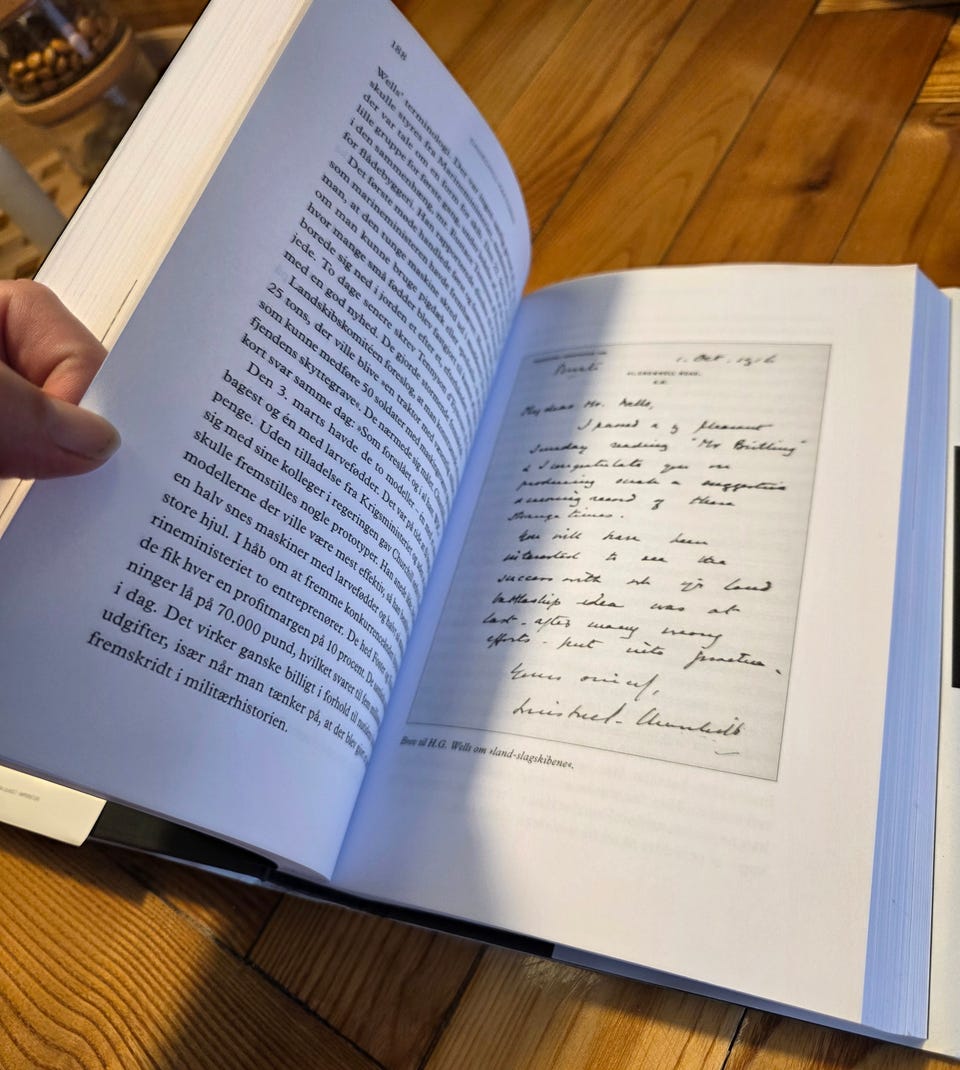 188
Wells' terminologi. Det var
skulle styres fra Marinen
der var tale om en form for
lille gruppe for første gang
i den sammenhæng, mr. Tennyson
for flådebyggeri. Han rapporterede
Det første møde handlede
som marineministeren havde fremlagt
man, at den tunge maskine skred ud
om man kunne bruge pigdæk eller
hvor mange små fødder blev fastgjort
borede sig ned i jorden et efter et, efterhånden
jede. To dage senere skrev Tennyson
med en god nyhed. De gjorde stormende
Landskibskomitéen foreslog, at man
25 tons, der ville blive »en traktor med
som kunne medføre 50 soldater med maskingeværer
fjendens skyttegrave«. De nærmede sig målet.
kort svar samme dag: »Som foreslået og i al hast.
Den 3. marts havde de to modeller – en med
bagest og én med larvefødder. Det var på tide
penge. Uden tilladelse fra Krigsministeriet og
sig med sine kolleger i regeringen gav Churchill
skulle fremstilles nogle prototyper. Han anede
modellerne der ville være mest effektiv, så han
en halv snes maskiner med larvefødder og halvt så
store hjul. I håb om at fremme konkurrencen
rineministeriet to entreprenører. De hed Foster og
de fik hver en profitmargen på 10 procent. De samlede
ninger lå på 70.000 pund, hvilket svarer til fem
i dag. Det virker ganske billigt i forhold til
udgifter, især når man tænker på, at det blev
fremskridt i militærhistorien.
1. Oct. 1916
Private
41, CROMWELL ROAD.
S.W.
My dear Mr. Wells,
I passed a pleasant
Sunday reading "Mr Britling"
& I congratulate you on
producing such a suggestive
& moving record of these
strange times.
You will have been
interested to see the
success with wh yr land
battleship idea was at
last - after many weary
efforts - put into practice.
Yours sincly,
Winston S. Churchill
Brev til H.G. Wells om »land-slagskibene«.